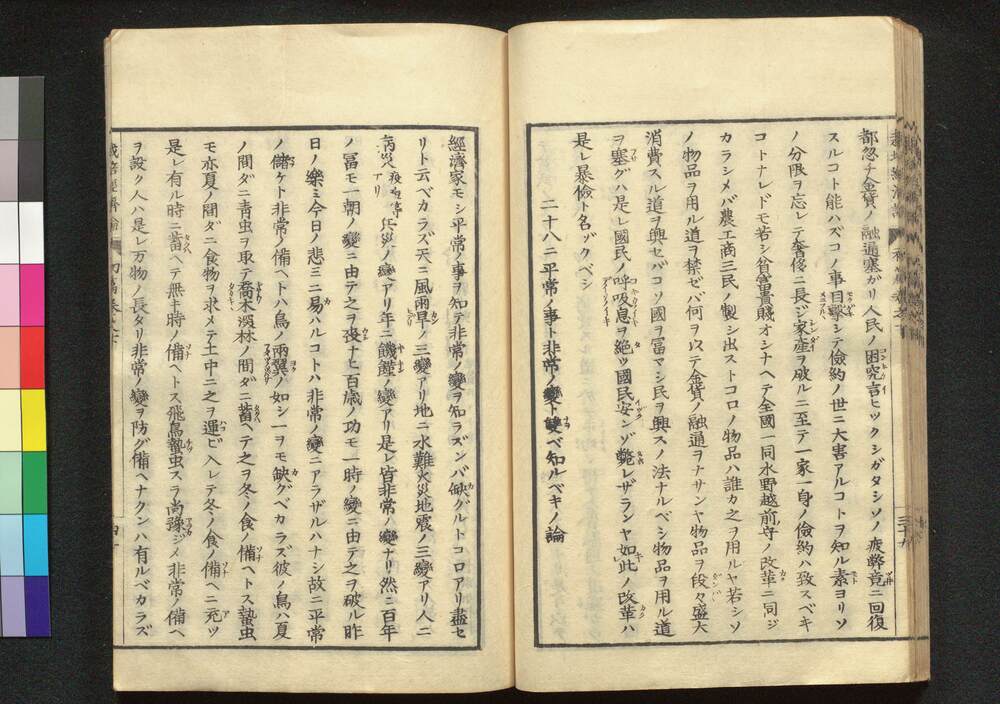 都忽チ金貨ノ融通塞ガリ人民ノ困究言ヒツクシガタシソノ疲弊竟ニ回復
スルコト能ハズコノ事目撃シテ倹約ノ世ニ大害アルコトヲ知ル素ヨリソ
ノ分限ヲ忘レテ奢侈ニ長ジ家産ヲ破ルニ至テ一家一身ノ倹約ハ致スベキ
コトナレドモ若シ貧富貴賤オシナヘテ全國一同水野越前守ノ改革ニ同ジ
カラシメバ農工商三民ノ製シ出ストコロノ物品ハ誰カ之ヲ用ルヤ若シソ
ノ物品ヲ用ル道ヲ禁ゼバ何ヲ以テ金貨ノ融通ヲナサンヤ物品ヲ段々盛大
消費スル道ヲ興セバコソ國ヲ冨マシ民ヲ興スノ法ナルベシ物品ヲ用ル道
ヲ塞グハ是レ國民ノ呼吸息ヲ絶ツ國民安ンゾ斃レザランヤ如此ノ改革ハ
是レ暴儉ト名ヅクベシ
二十八ニ平常ノ事ト非常ノ變ト雙ベ知ルベキノ論
經濟家モシ平常ノ事ヲ知テ非常ノ變ヲ知ラズンバ缺グルトコロアリ盡セ
リト云ベカラズ天ニ風雨旱ノ三變アリ地ニ水難火災地震ノ三變アリ人ニ
病災アリ兵災ノ變アリ年ニ饑饉ノ變アリ是レ皆非常ノ變ナリ然ニ百年
ノ冨モ一朝ノ變ニ由テ之ヲ喪ナヒ百歳ノ功モ一時ノ變ニ由テ之ヲ破ル昨
日ノ樂ミ今日ノ悲ミニ易ハルコトハ非常ノ變ニアラザルハナシ故ニ平常
ノ儲ケト非常ノ備ヘトハ鳥ノ兩翼ノ如シ一ヲモ缺グベカラズ彼ノ鳥ハ夏
ノ間ダニ青虫ヲ取テ喬木深林ノ間ダニ蓄ヘテ之ヲ冬ノ食ノ備ヘトス蟄虫
モ亦夏ノ間ダニ食物ヲ求メテ土中ニ之ヲ運ビ入レテ冬ノ食ノ備ヘニ充ツ
是レ有ル時ニ蓄ヘテ無キ時ノ備ヘトス飛鳥蟄虫スラ尚豫ジメ非常ノ備ヘ
ヲ設ク人ハ是レ万物ノ長タリ非常ノ變ヲ防グ備ヘナクンハ有ルベカラズ